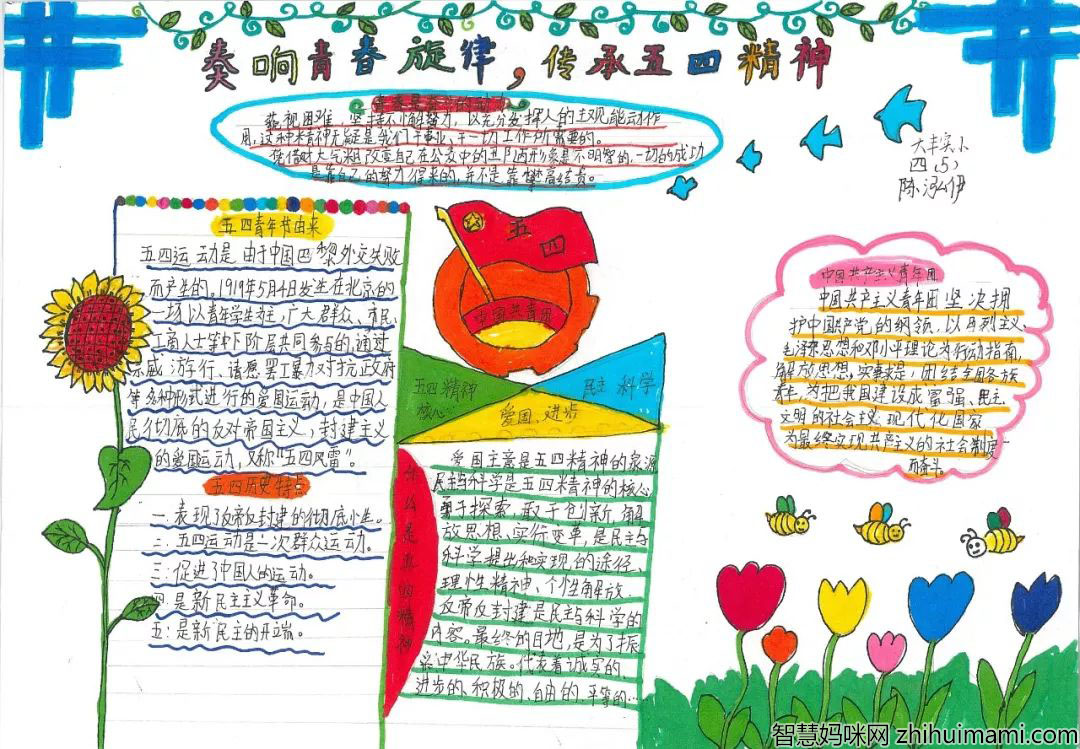 奏响青春旋律，传承五四精神
藐视困难，坚持不懈努力，以充分发探人的主观能动作
用，这种精神无疑是我们干事业、干一切工作所需要的。
是靠自己的努力得来的，并不是靠攀高结贵。
大丰实小
四（5）
五四青年节由来
五四运动是由于中国巴黎外交失败
而产生的，1919年5月4日发生在北京的
一场以青年学生为主，广大群众、市民、
工商人士等中下阶层共同参与的，通过
示威游行、请愿罢工暴力对抗政府
等多种形式进行的爱国运动，是中国人
民彻底的反对帝国主义，封建主义
的爱国运动，又称“五四风雷”。
五四历史特点
一.表现了反帝反封建的彻底性。
二.五四运动是一次群众运动。
三.促进了中国人的运动。
四.是新民主主义革命。
五.是新民主的开端。
五四
中国共青团
五四精神
核心：
民主 科学
爱国、进步
爱国主意是五四精神的泉源
民主与科学是五四精神的核心
勇于探索，敢于创新，解
放思想、实行变革，是民主与
科学提出和实现的途径、
理性精神、个性解放、
反帝反封建是民主与科学的
内容。最终的目地，是为了振
兴中华民族。代表着诚实的、
进步的、积极的、自由的、平等的…
中国共产主义青年团
中国共产主义青年团坚决拥
护中国共产党的纲领，以马列主义、
毛泽东思想和邓小平理论为行动指南，
解放思想，实事求是，团结全国各族
青年，为把我国建设成富强、民主、
文明的社会主义现代化国家
为最终实现共产主义的社会制度
而奋斗。
智慧妈咪网 zhihuimami.com